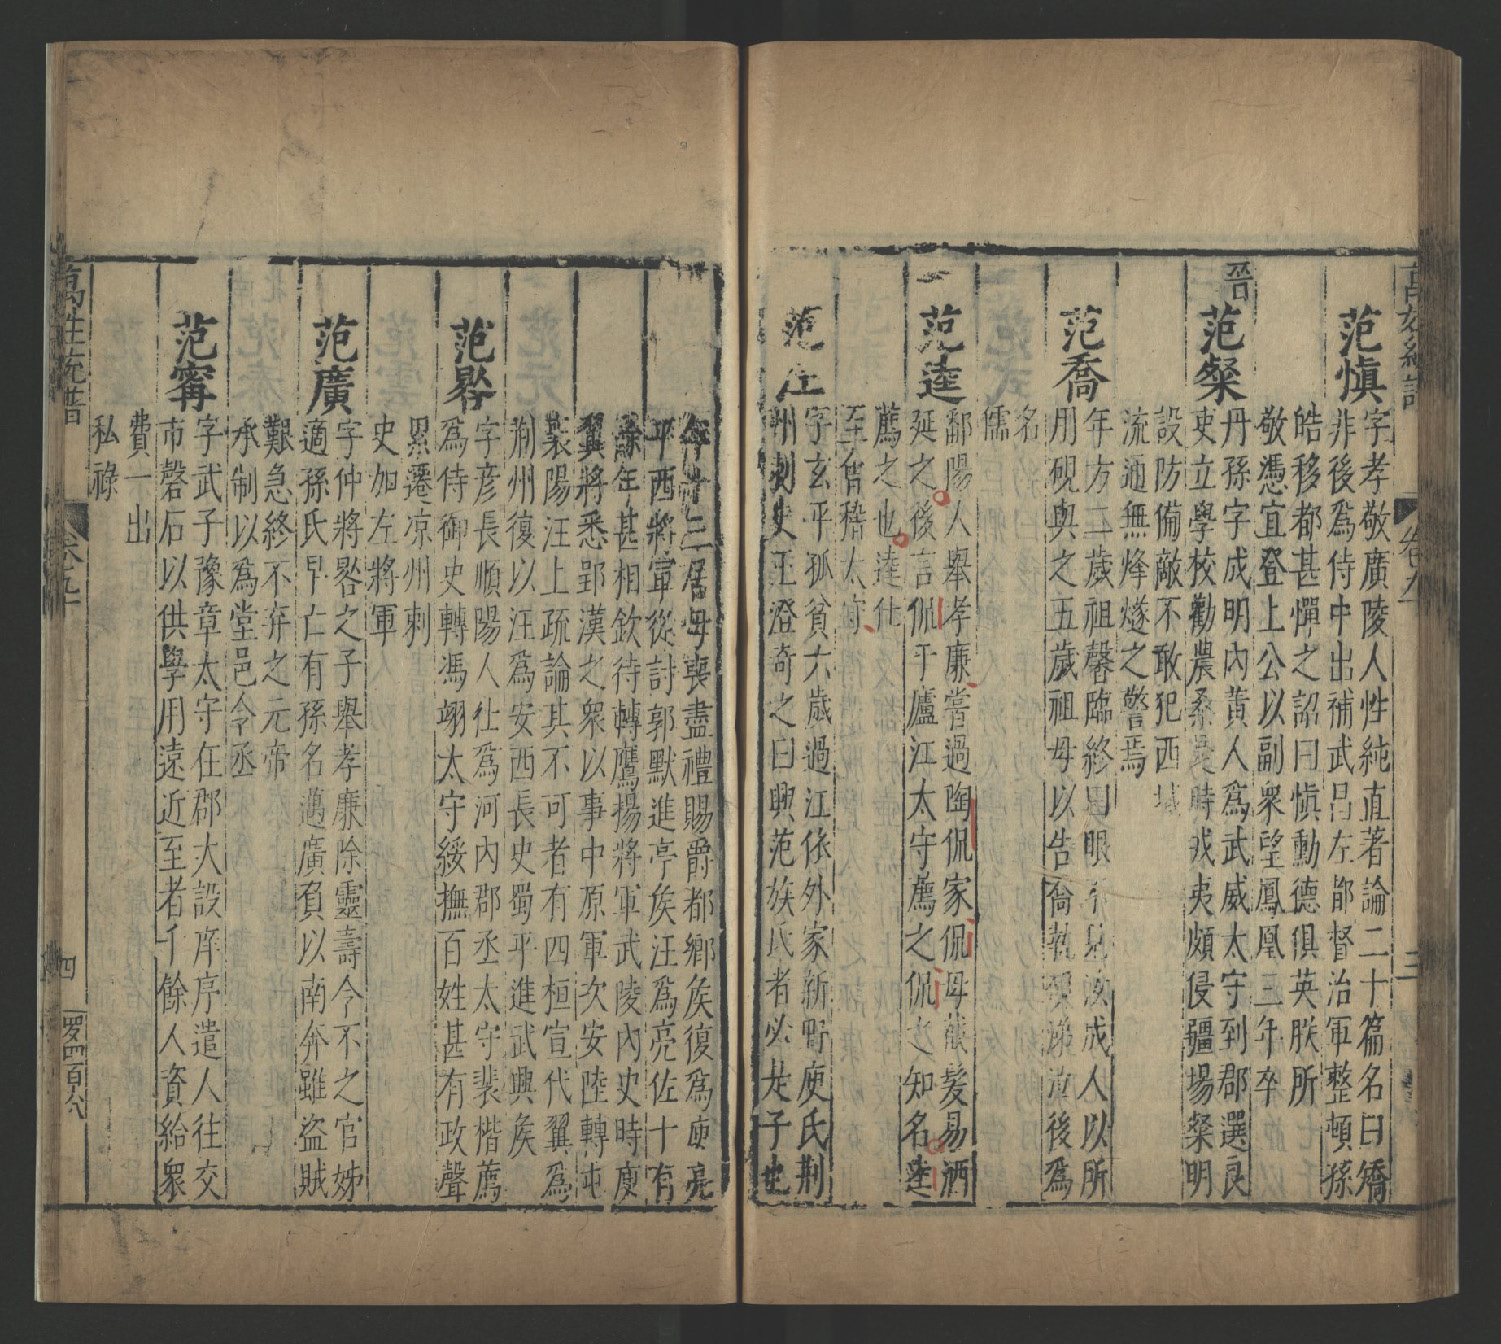 萬姓統譜
卷九十
三
范慎
字孝敬廣陵人性純直著論二十篇名曰矯
非後爲侍中出補武昌左部督治軍整頓孫
皓移都甚憚之詔曰慎勳德俱英朕所
敬憑宜登上公以副衆望鳳凰三年卒
晉
范粲
丹孫字成明內黃人爲武威太守到郡選良
吏立學校勸農桑是時戎夷頗侵疆場粲明
設防備敵不敢犯西域
流通無烽燧之警焉
范喬
年方二歲祖馨臨終曰恨不見汝成人以所
用硯與之五歲祖母以告喬執硯涕泣後爲
名
儒
范逵
鄱陽人舉孝廉嘗過陶侃家侃母截髮易酒
延之後言侃于廬江太守薦之侃之知名逵
薦之也逵仕
至會稽太守
范汪
字玄平孤貧六歲過江依外家新野庾氏荆
州刺史王澄奇之曰興范族氏者必是子也
年十三居母喪盡禮賜爵都鄉矦復爲庾亮
平西將軍從討郭默進亭矦汪爲亮佐十有
餘年甚相欽待轉鷹揚將軍武陵內史時庾
翼將悉郢漢之衆以事中原軍次安陸轉屯
襄陽汪上疏論其不可者有四桓宣代翼爲
荊州復以汪爲安西長史蜀平進武興矦
范晷
字彥長順陽人仕爲河內郡丞太守裴楷薦
爲侍御史轉馮翊太守綏撫百姓甚有政聲
累遷凉州刺
史加左將軍
范廣
字仲將晷之子舉孝廉除靈壽令不之官姊
適孫氏早亡有孫名邁廣負以南奔雖盗賊
艱急終不弃之元帝
承制以爲堂邑令丞
范甯
字武子豫章太守在郡大設庠序遣人往交
市磬石以供學用遠近至者千餘人資給衆
費一出
私祿
萬姓統譜
卷九十
四